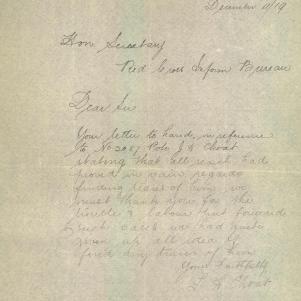 December 11/19
Hon Secretary
Red Cross Inform Bureau
Dear Sir
Your letter to hand, in reference
to No 2087 Pte J. S Choat
stating that all reach had
proved in vain regards
finding trace of him, we
must thank you for the
trouble & labour put forwards
such cases we had quite
given up all idea of
finding traces of him
Yours Faithfully
Choat